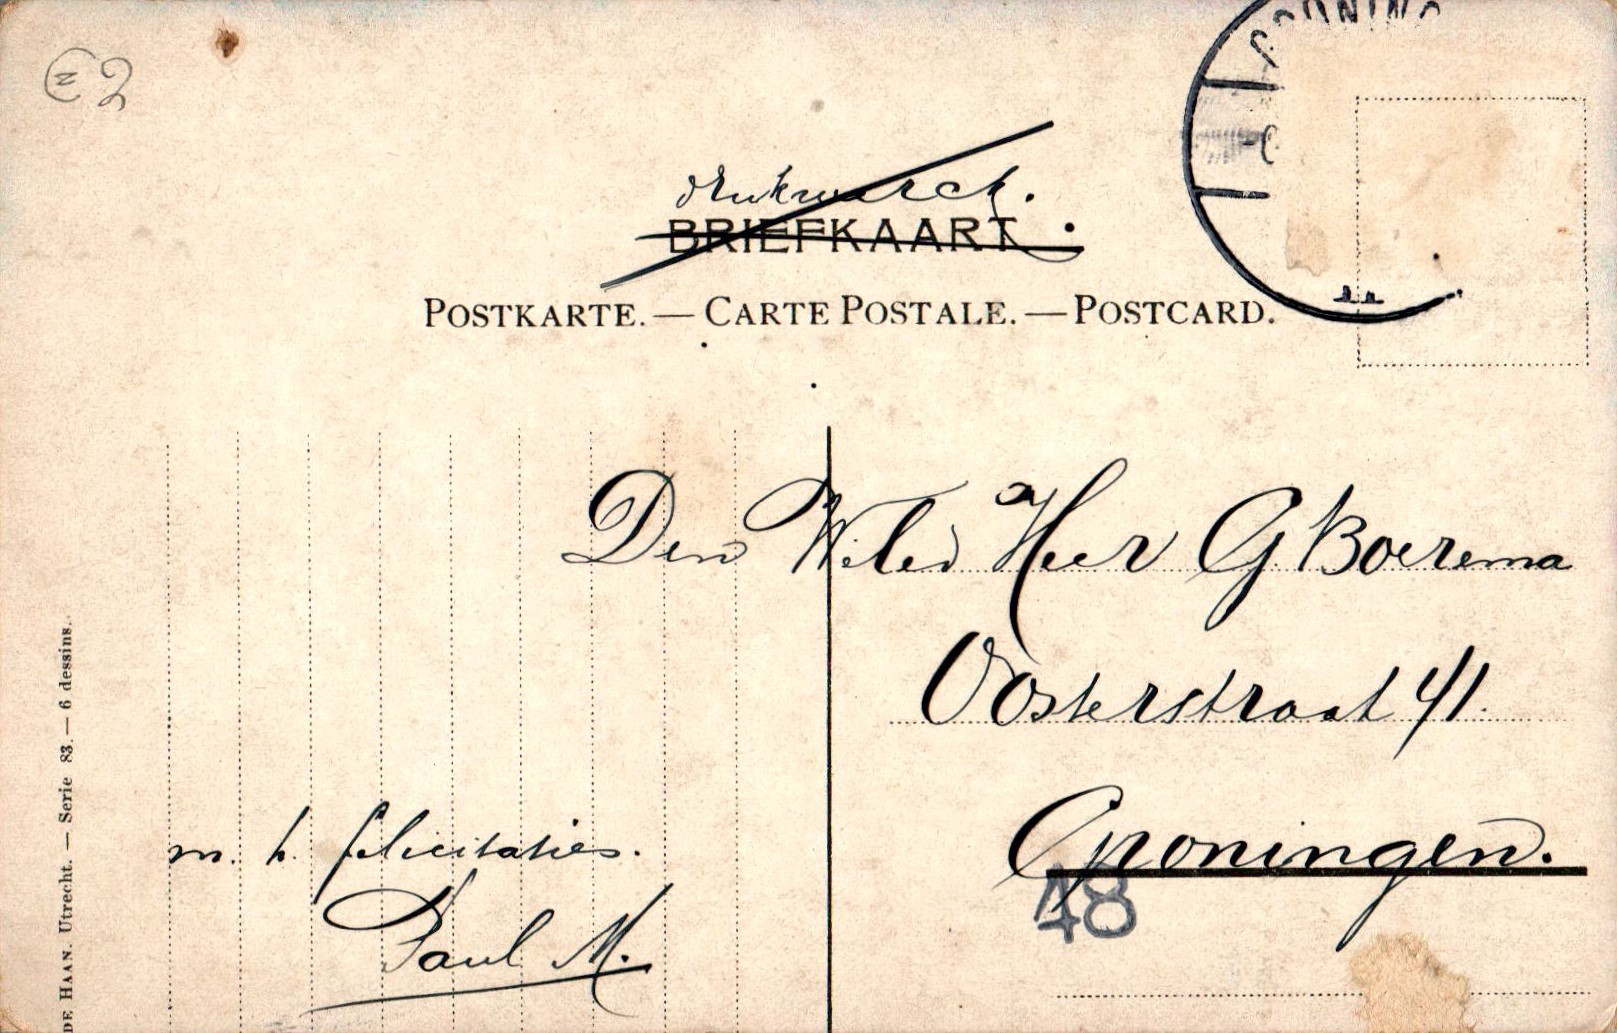 €2
drukwerck.
BRIEFKAART.
POSTKARTE. — CARTE POSTALE. — POSTCARD.
Den Weled Heer G Boerema
Oosterstraat 41.
Groningen.
48
m. h. felicitaties.
Paul M.
DE HAAN. Utrecht. — Serie 83. — 6 dessins.